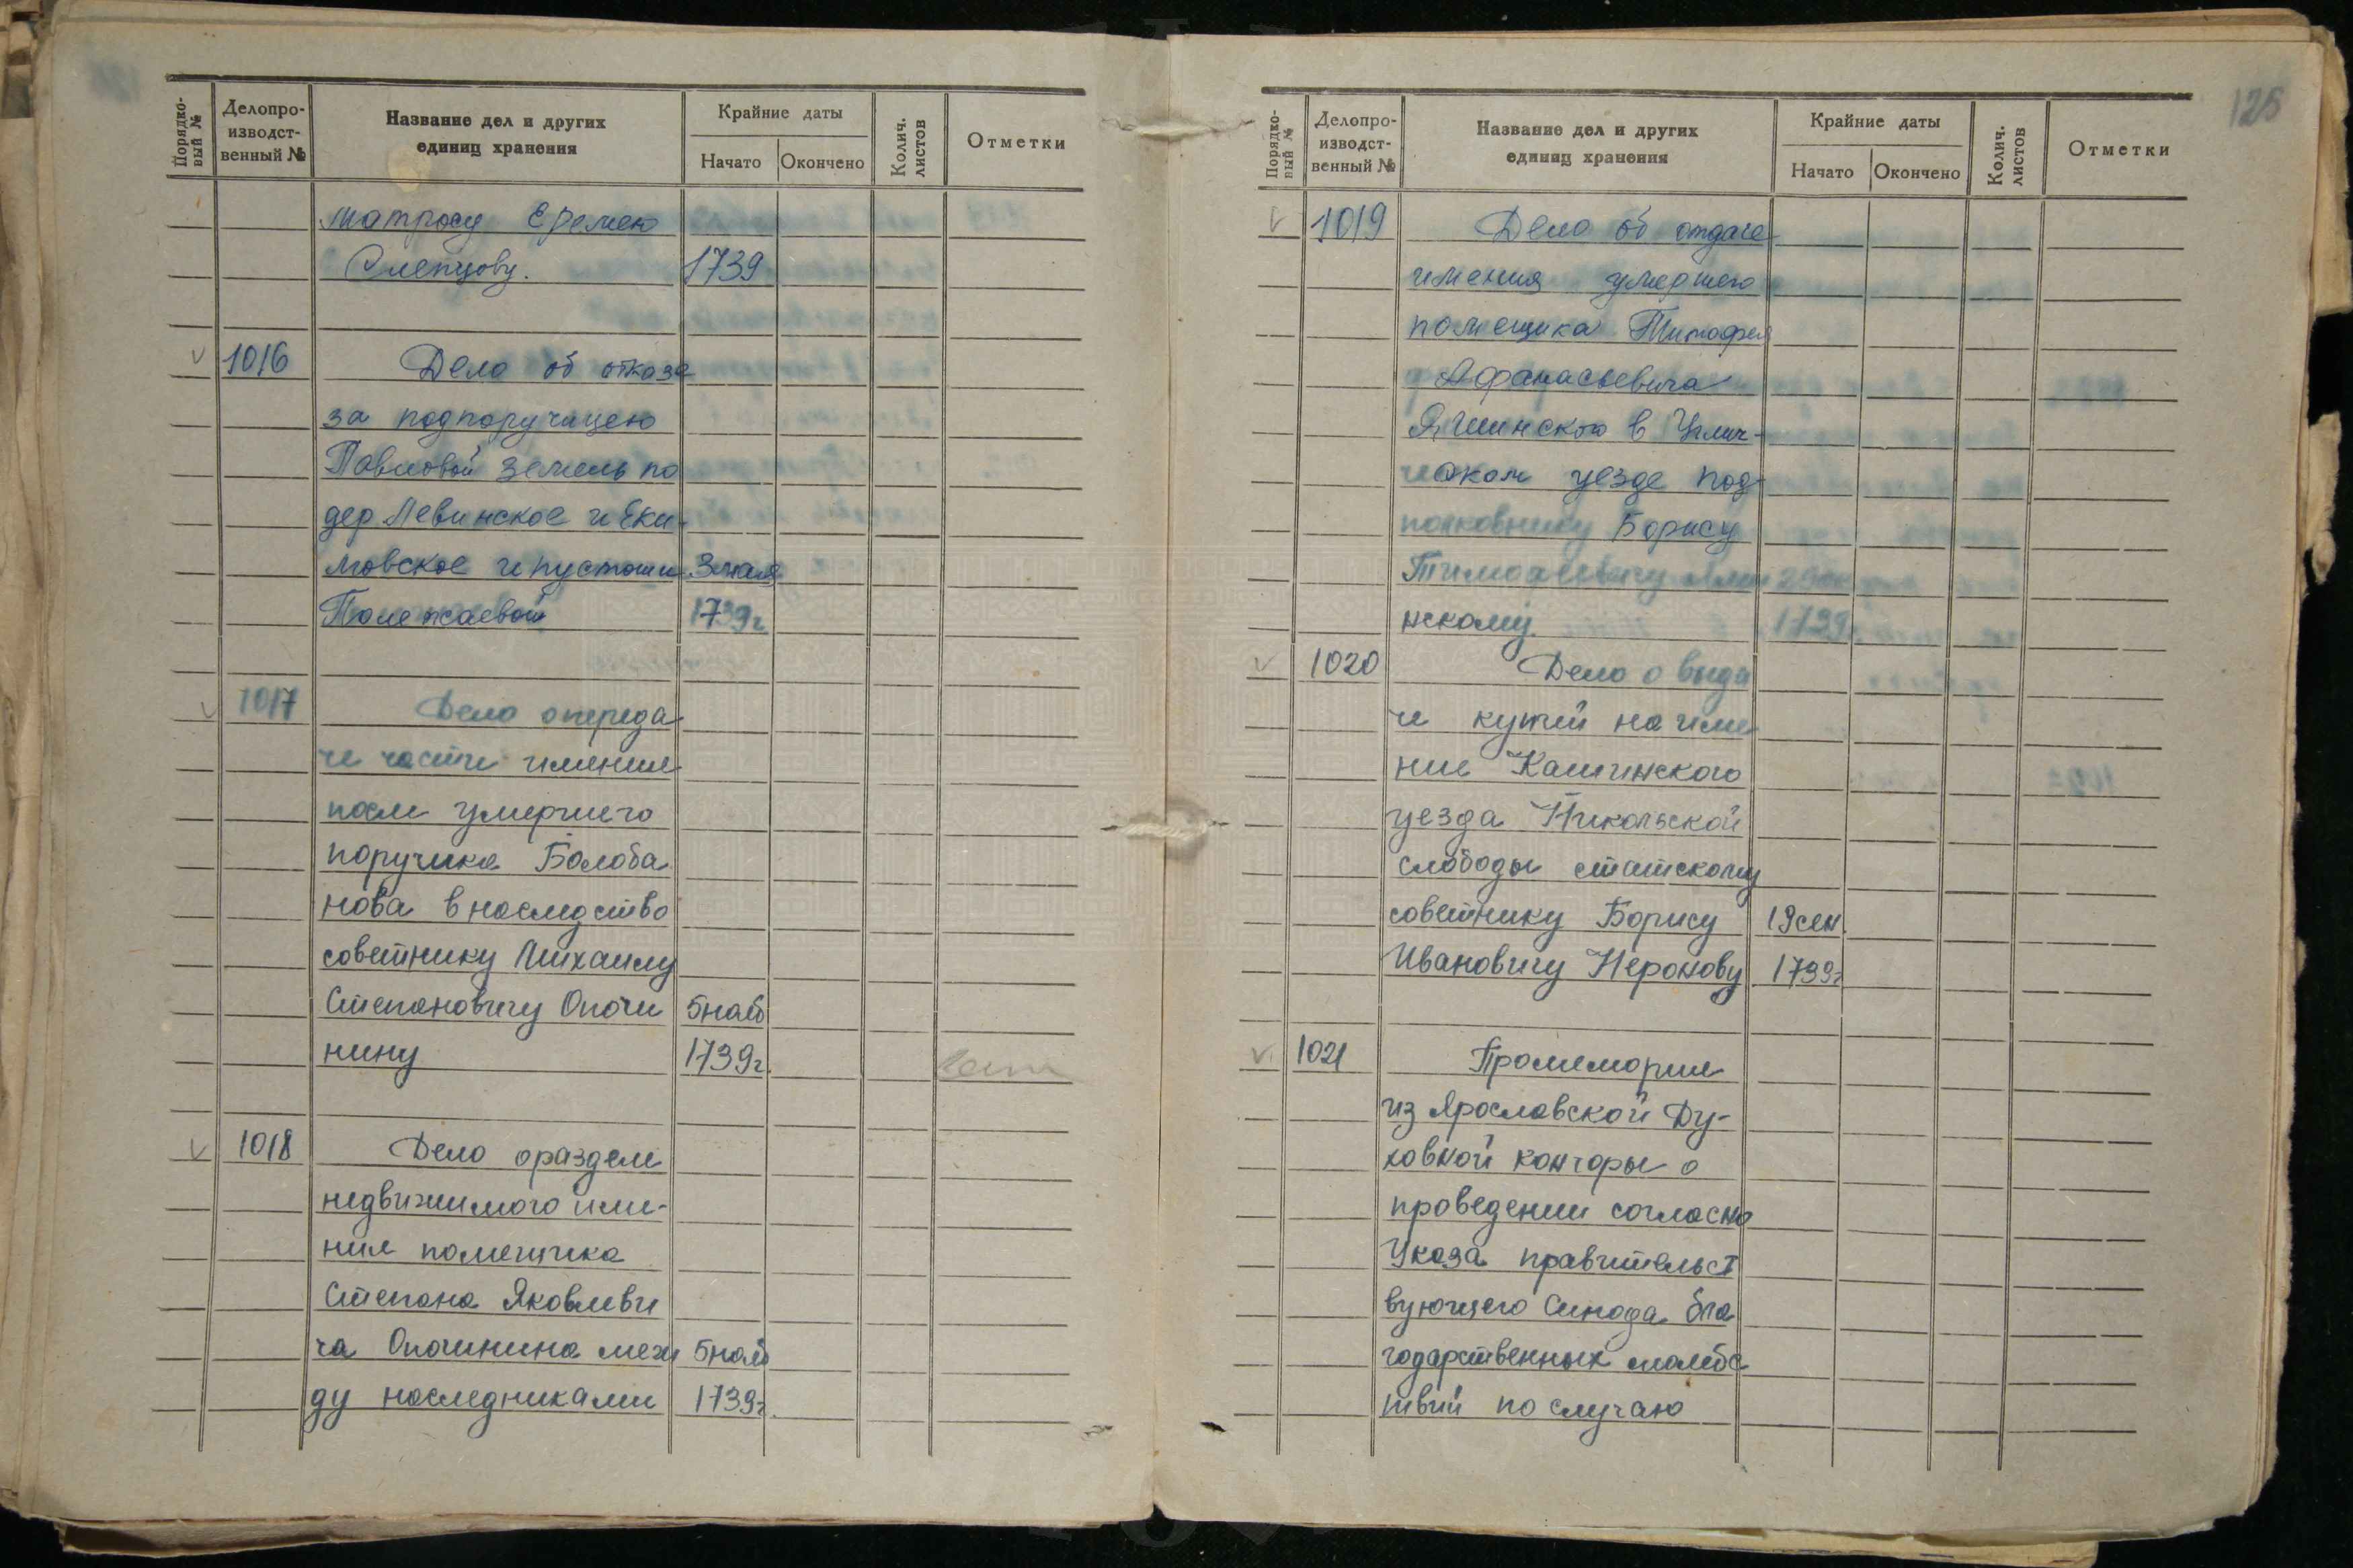 Порядко-
вый №
Делопро-
изводст-
венный №
Название дел и других
единиц хранения
Крайние даты
Начато
Окончено
Колич.
листов
Отметки
матросу Еремею
Слепцову. 1739
1016 Дело об отказе
за подпоручицею
Павловой земель по
дер. Левинское и Еки-
мовское и пустоши 3 мая
Полежаевой 1739г
1017 Дело о переда
че части имения
после умершего
поручика Болоба
нова в наследство
советнику Михаилу
Степановичу Опочи 5 нояб
нину 1739г.
1018 Дело о разделе
недвижимого име-
ния помещика
Степана Яковлеви
ча Опочинина меж 5 нояб
ду наследниками 1739г.
125
Порядко-
вый №
Делопро-
изводст-
венный №
Название дел и других
единиц хранения
Крайние даты
Начато
Окончено
Колич.
листов
Отметки
1019 Дело об отдаче
имения умершего
помещика Тимофея
Афанасьевича
в Углич-
ском уезде под-
полковнику Борису
нскому. 1739
1020 Дело о выда
че купчей на име
ние Кашинского
уезда Никольской
слободы статскому
советнику Борису 19 сен.
Ивановичу Неронову 1739г
1021 Промемория
из Ярославской Ду-
ховной конторы о
проведении согласно
Указа правительст
вующего Синода бла
годарственных молебс
твий по случаю